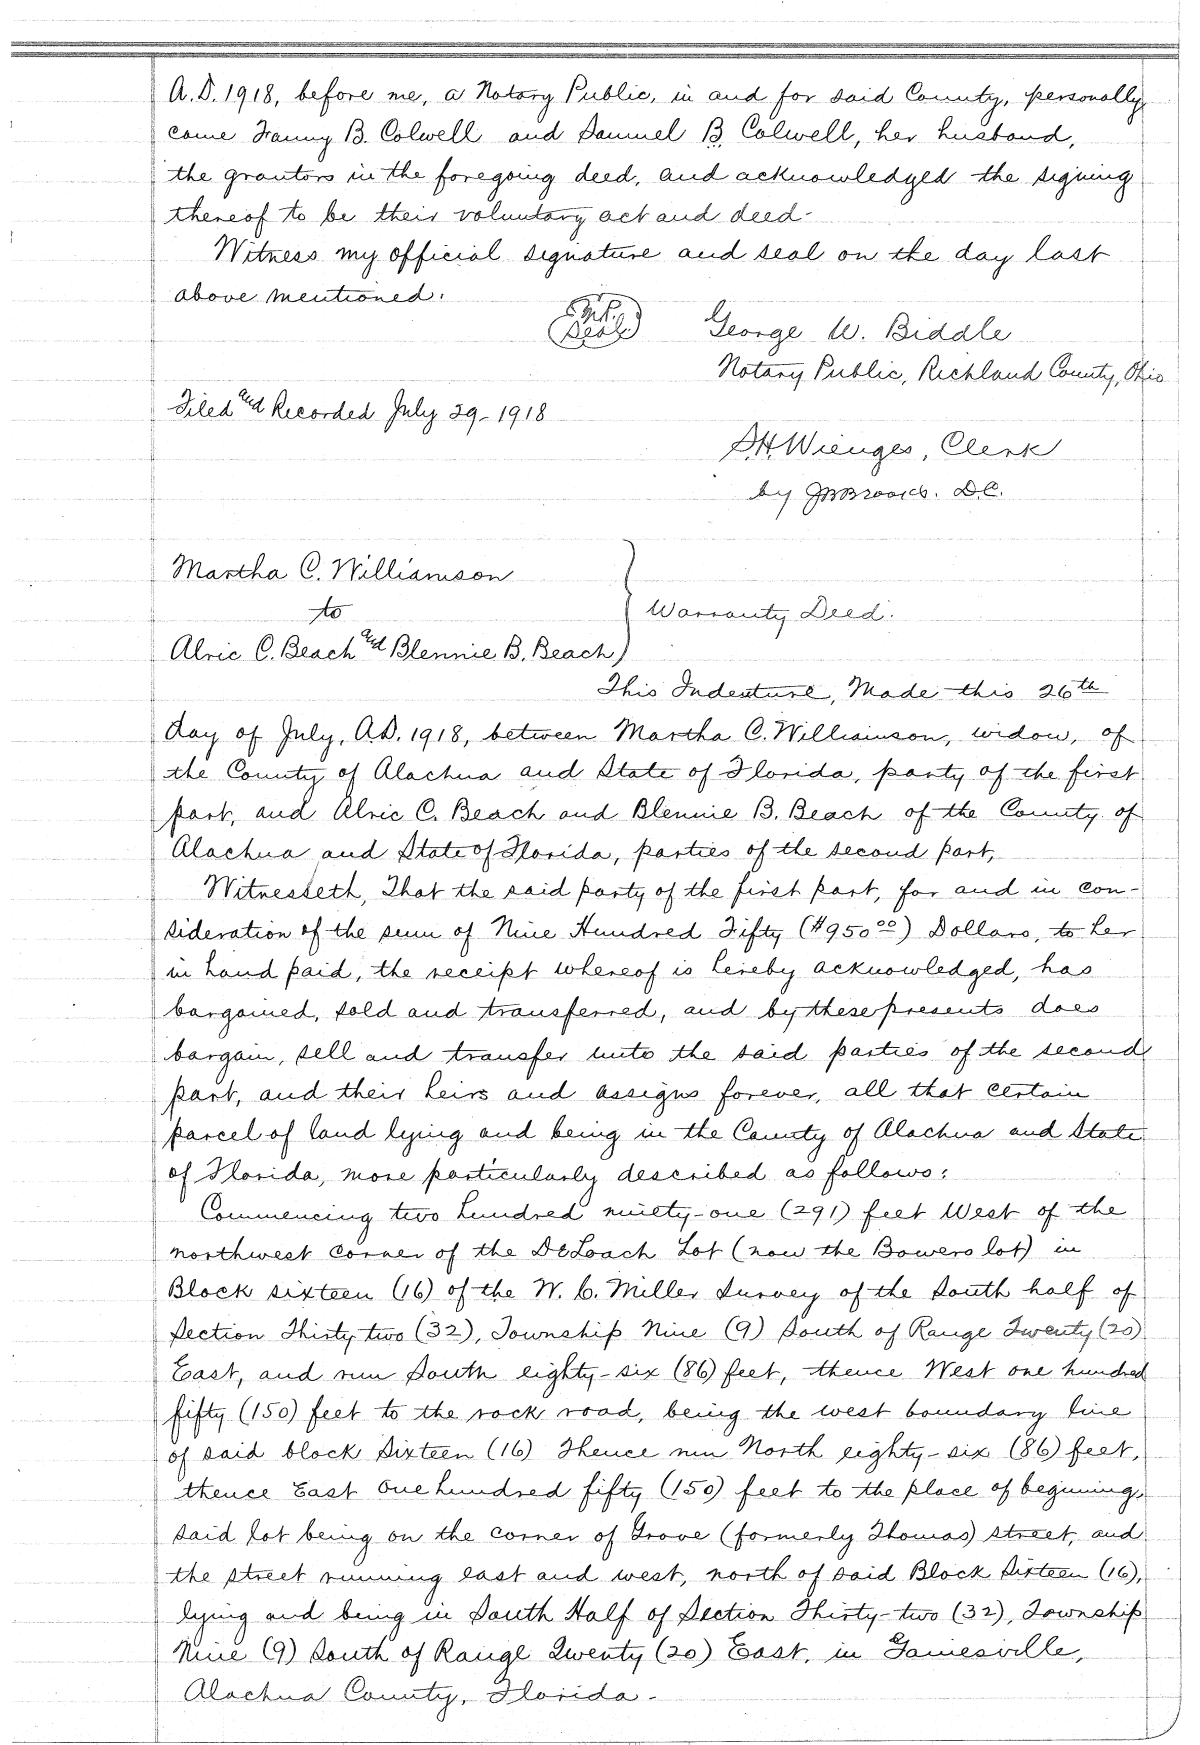 A.D. 1918, before me, a Notary Public, in and for said County, personally
came Fanny B. Colwell and Samuel B. Colwell, her husband,
the grantors in the foregoing deed, and acknowledged the signing
thereof to be their voluntary act and deed-
Witness my official signature and seal on the day last
above mentioned.
N.P. Seal
George W. Biddle
Notary Public, Richland County, Ohio
Filed and Recorded July 29-1918
S.H. Wienges, Clerk
by D.C.
Martha C. Williamson
to
Warranty Deed.
Alric C. Beach and Blennie B. Beach
This Indenture, Made this 26th
day of July, A.D. 1918, between Martha C. Williamson, widow, of
the County of Alachua and State of Florida, party of the first
part, and Alric C. Beach and Blennie B. Beach of the County of
Alachua and State of Florida, parties of the second part,
Witnesseth, That the said party of the first part, for and in con-
sideration of the sum of Nine Hundred Fifty ($950.00) Dollars, to her
in hand paid, the receipt whereof is hereby acknowledged, has
bargained, sold and transferred, and by these presents does
bargain, sell and transfer unto the said parties of the second
part, and their heirs and assigns forever, all that certain
parcel of land lying and being in the County of Alachua and State
of Florida, more particularly described as follows:
Commencing two hundred ninety-one (291) feet West of the
northwest corner of the DeLoach Lot (now the Bowers lot) in
Block sixteen (16) of the W. C. Miller Survey of the South half of
Section Thirty two (32), Township Nine (9) South of Range Twenty (20)
East, and run South eighty-six (86) feet, thence West one hundred
fifty (150) feet to the rock road, being the west boundary line
of said block Sixteen (16) Thence run North eighty-six (86) feet,
thence East one hundred fifty (150) feet to the place of beginning,
said lot being on the corner of Grove (formerly Thomas) street, and
the street running east and west, north of said Block Sixteen (16),
lying and being in South Half of Section Thirty-two (32), Township
Nine (9) South of Range Twenty (20) East, in Gainesville,
Alachua County, Florida.